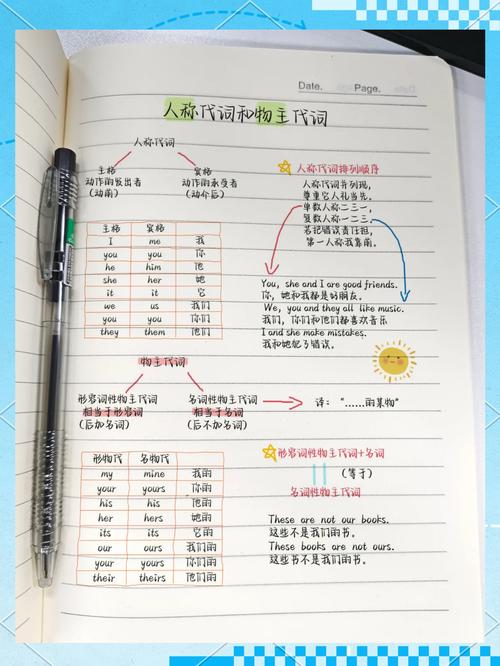 Date.
Page.
人称代词和物主代词
人称代词
主格
动作的发出者
(动雨)
宾格
动作的承受者
(动介后)
主格 宾格
I me 我
you you 你
he him 他
she her 她
it it 它
we us 我们
you you 你们
they them 他们
人称代词排列顺序
人称代词并列现,
尊重它人礼当先。
单数人称二三一,
复数人称一二三,
若记错误责任担,
第一人称我靠雨。
You, she and I are good friends.
你,她和我都是的朋友。
We, you and they all like music.
我们,你们和他们都喜欢音乐
I and she make mistakes.
我和她犯了错误。
物主代词
形容词性物主代词
相当于形容词
(后加名词)
名词性物主代词
相当于名词
(后不加名词)
译: “......雨某物”
形物代 名物代
my mine 我雨
your yours 你雨
his his 他雨
her hers 她雨
its its 它雨
our ours 我们雨
your yours 你们雨
their theirs 他们雨
形容词性物主代词+名词
(等于)
名词性物主代词
These are not our books.
这些不是我们雨书。
These books are not ours.
这些书不是我们雨。